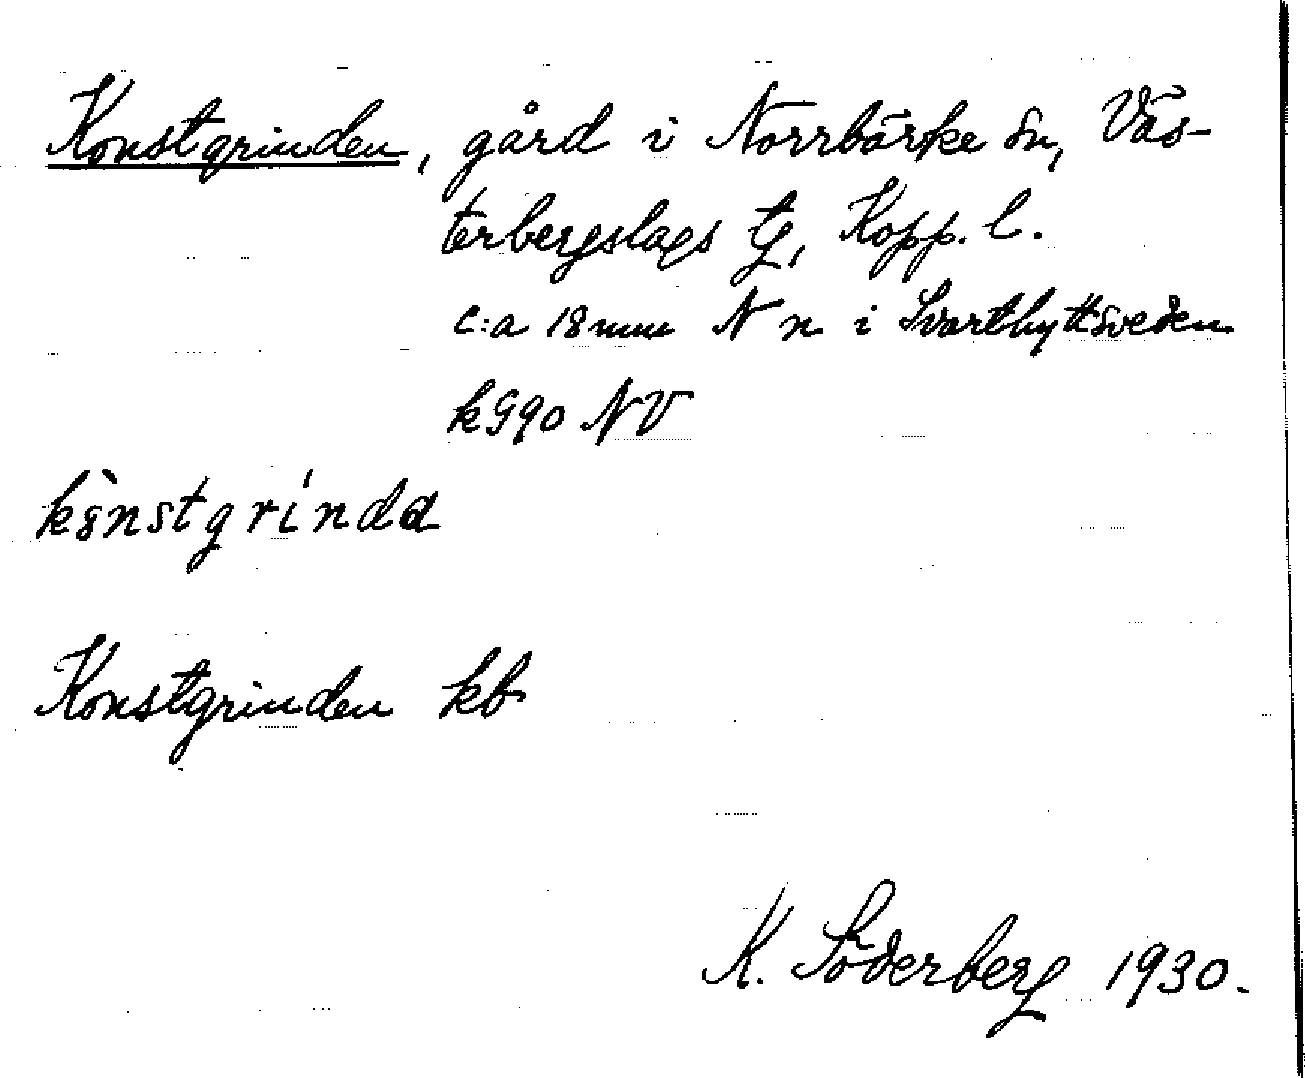 Konstgrinden, gård i Norrbärke sn, Väs-
terbergslags tg, Kopp. l.
c:a 18 mm N n i Svarthyttsveden
k 990 NV
kònstgrinda
Konstgrinden kb
K. Söderberg 1930.